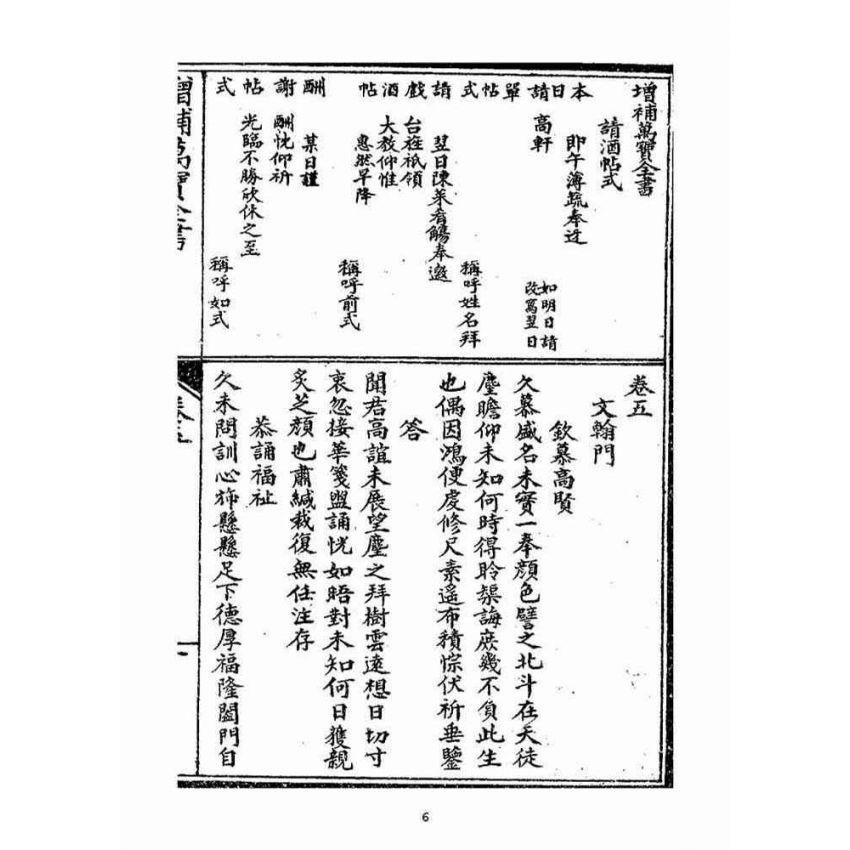 增補萬寶全書
請酒帖式
本日請單帖式
即午薄疏奉迓
高軒
如明日請
改寫翌日
稱呼姓名拜
請戲酒帖
翌日陳菜肴觴奉邀
台旌祇領
大教仰惟
惠然早降
稱呼前式
酬謝帖式
某日謹
酬恍仰祈
光臨不勝欣休之至
稱呼如式
卷五
文翰門
欽慕高賢
久慕盛名未實一奉顏色譬之北斗在天徒
塵瞻仰未知何時得聆榘誨庶幾不負此生
也偶因鴻便虔修尺素遙布積悰伏祈垂鑒
答
聞君高誼未展望塵之拜樹雲遠想日切寸
衷忽接華箋盟誦恍如晤對未知何日獲親
炙芝顏也肅緘裁復無任注存
恭誦福祉
久未問訓心旆懸懸足下德厚福隆闔門自
增補萬寶全書
卷五
6